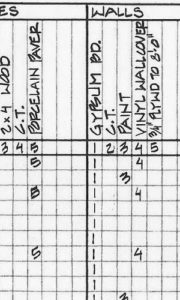 ES
WALLS
2 x 4 WOOD
C.T.
PORCELAIN PAVER
GYPSUM BD.
C.T.
PAINT
VINYL WALLCOVER
3/4" PLYWD TO 8'-0"
3 4 5 1 2 3 4 5
5 4
3
5 4
5 4
3